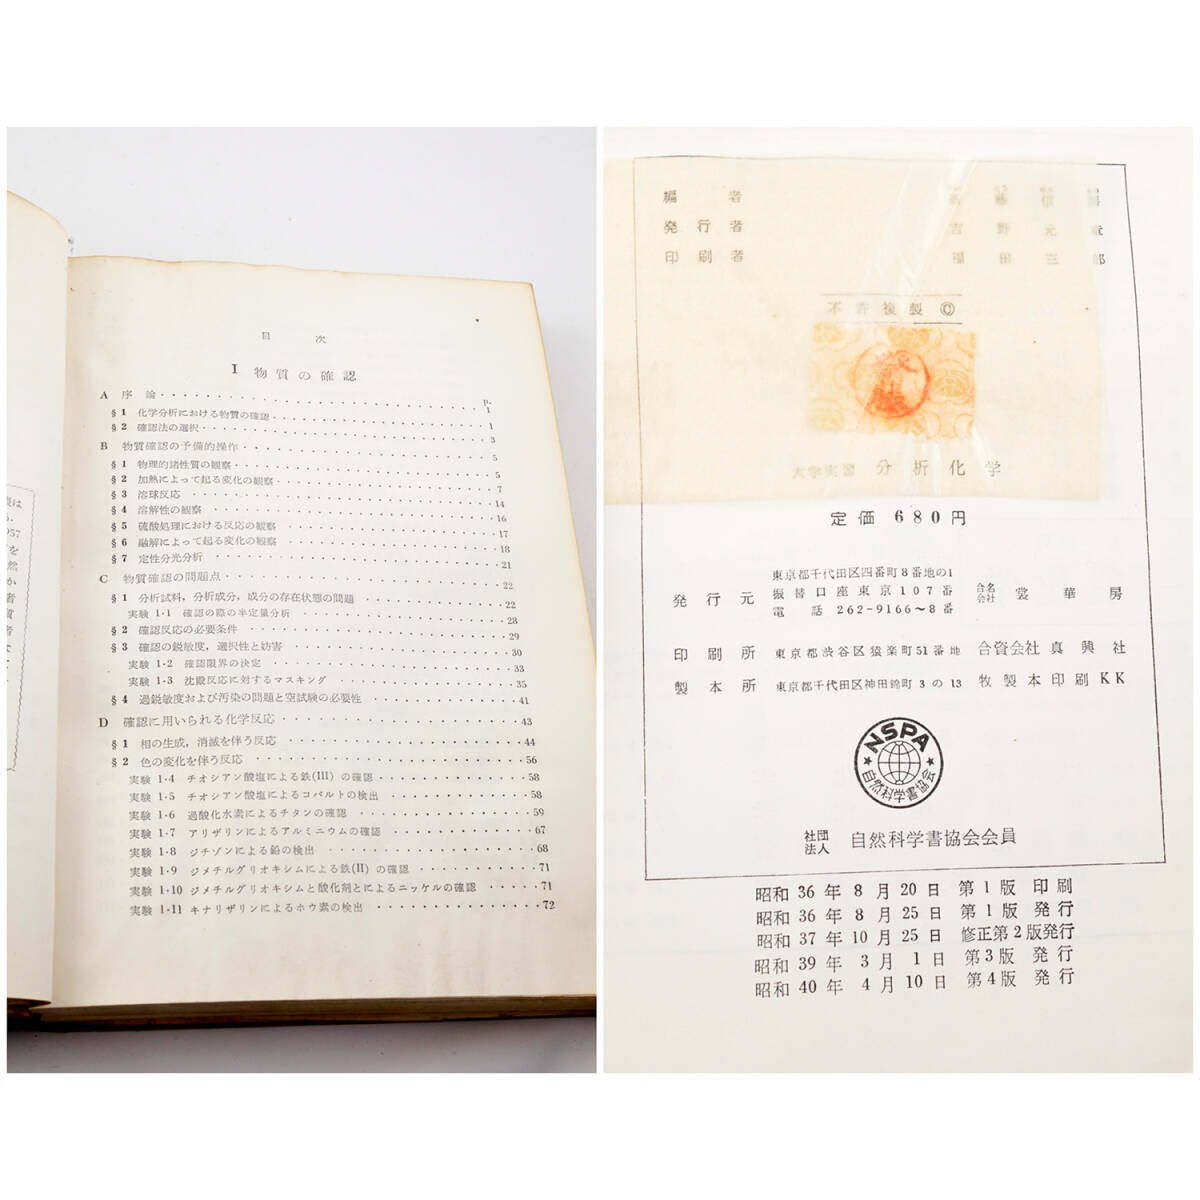 目 次
I 物質の確認
A 序論 1
p.
§1 化学分析における物質の確認 1
§2 確認法の選択 3
B 物質確認の予備的操作 5
§1 物理的諸性質の観察 5
§2 加熱によって起る変化の観察 7
§3 溶球反応 14
§4 溶解性の観察 16
§5 硫酸処理における反応の観察 17
§6 融解によって起る変化の観察 18
§7 定性分光分析 21
C 物質確認の問題点 22
§1 分析試料,分析成分,成分の存在状態の問題 22
実験 1・1 確認の際の半定量分析 28
§2 確認反応の必要条件 29
§3 確認の鋭敏度,選択性と妨害 30
実験 1・2 確認限界の決定 33
実験 1・3 沈殿反応に対するマスキング 35
§4 過鋭敏度および汚染の問題と空試験の必要性 41
D 確認に用いられる化学反応 43
§1 相の生成,消滅を伴う反応 44
§2 色の変化を伴う反応 56
実験 1・4 チオシアン酸塩による鉄(III) の確認 58
実験 1・5 チオシアン酸塩によるコバルトの検出 58
実験 1・6 過酸化水素によるチタンの確認 59
実験 1・7 アリザリンによるアルミニウムの確認 67
実験 1・8 ジチゾンによる鉛の検出 68
実験 1・9 ジメチルグリオキシムによる鉄(II) の確認 71
実験 1・10 ジメチルグリオキシムと酸化剤とによるニッケルの確認 71
実験 1・11 キナリザリンによるホウ素の検出 72
編者
発行者 吉野元章
印刷者 福田三郎
不許複製 ©
大学実習 分析化学
定価 680円
東京都千代田区四番町8番地の1
発行元 振替口座東京107番 合名会社 裳華房
電話 262-9166〜8番
印刷所 東京都渋谷区猿楽町51番地 合資会社 真興社
製本所 東京都千代田区神田錦町3の13 牧製本印刷KK
NSPA
自然科学書協会
社団法人 自然科学書協会会員
昭和36年8月20日 第1版 印刷
昭和36年8月25日 第1版 発行
昭和37年10月25日 修正第2版発行
昭和39年3月1日 第3版 発行
昭和40年4月10日 第4版 発行